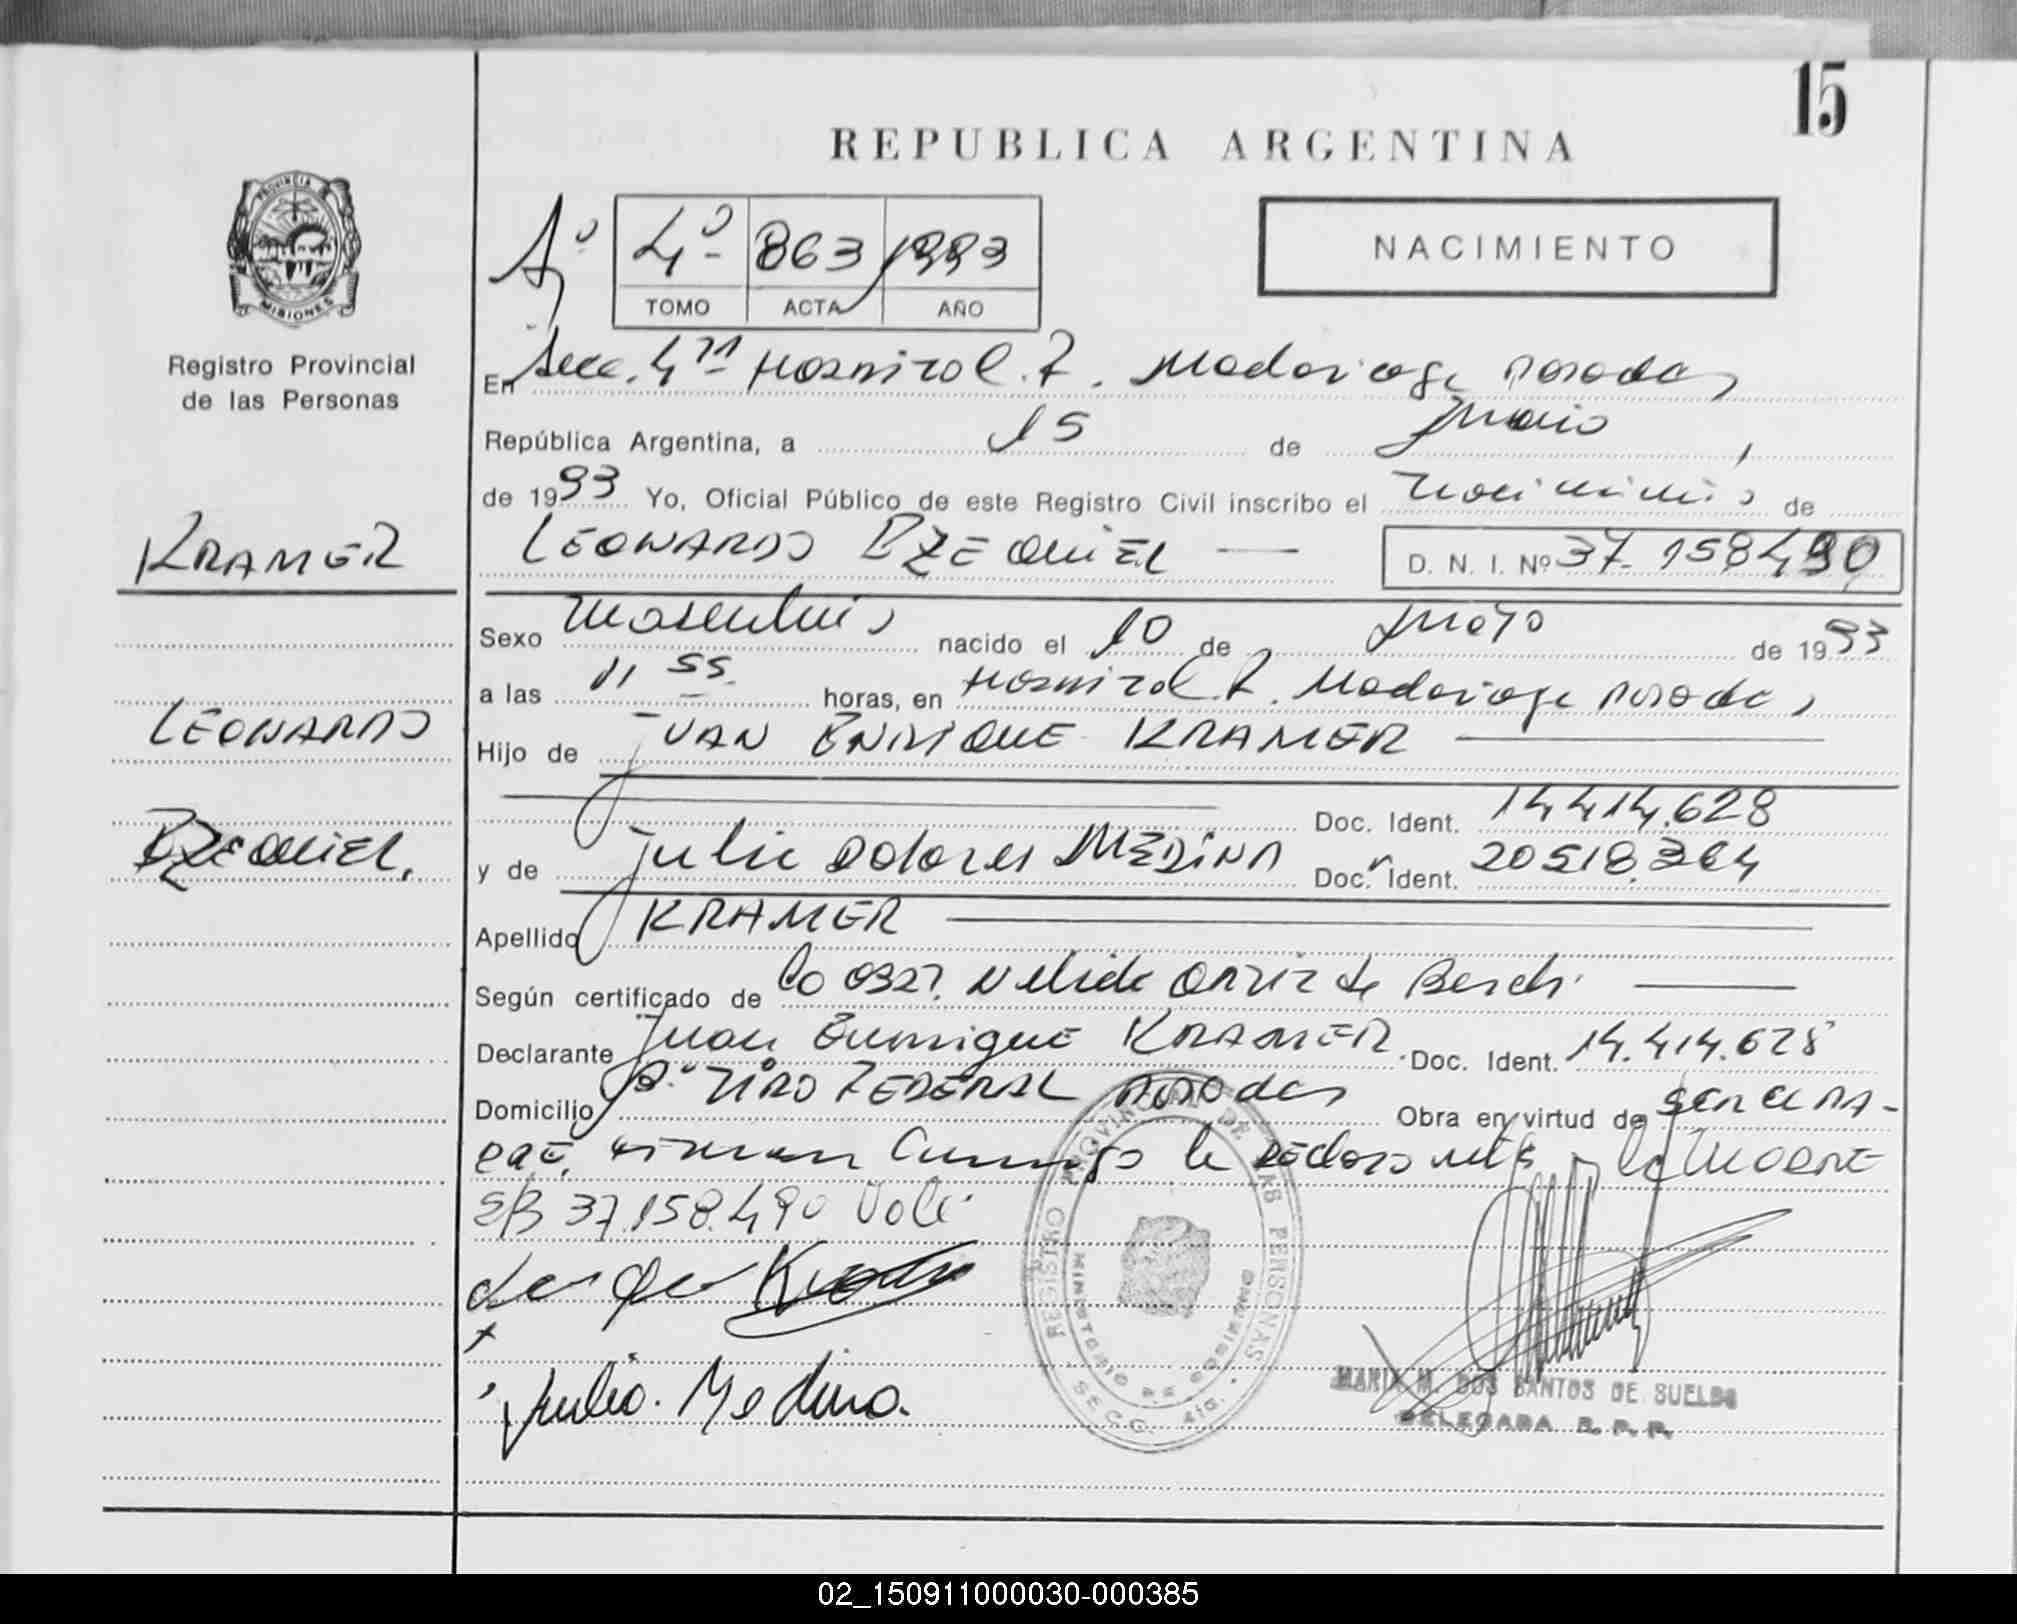 15
REPUBLICA ARGENTINA
PROVINCIA DE
MISIONES
Registro Provincial
de las Personas
Aº 4º- 863 / 1993
TOMO ACTA AÑO
NACIMIENTO
En Secc. 4ta Hospital R. Madariaga Posadas
República Argentina, a 15 de Mayo
de 1993 Yo, Oficial Público de este Registro Civil inscribo el nacimiento de
KRAMER
LEONARDO EZEQUIEL — D. N. I. Nº 37.158.490
Sexo masculino nacido el 10 de mayo de 1993
a las 11 55 horas, en Hospital R. Madariaga Posadas
LEONARDO
Hijo de JUAN ENRIQUE KRAMER
Doc. Ident. 14.414.628
EZEQUIEL.
y de Julia Dolores MEDINA Doc. Ident. 20518.364
Apellido KRAMER
Según certificado de Nelida Ortiz de Besch
Declarante Juan Enrique KRAMER Doc. Ident. 14.414.628
Domicilio Bº TIRO FEDERAL Posadas Obra en virtud de
firman conmigo la
37.158.490 Vale
Julia. Medina.
REGISTRO PROVINCIAL DE LAS PERSONAS
MINISTERIO DE GOBIERNO
SECC. 4ta.
MARIA M. DOS SANTOS DE SUELDO
DELEGADA R. P. P.
02_150911000030-000385